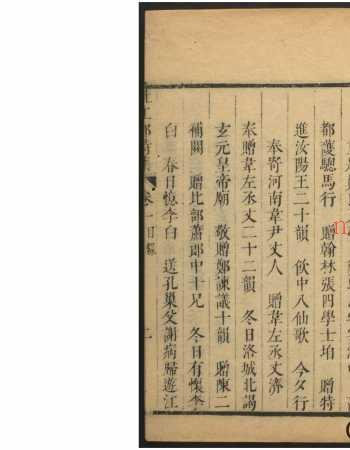 都護驄馬行　贈翰林張四學士垍　贈特
進汝陽王二十韻　飲中八仙歌　今夕行
奉寄河南韋尹丈人　贈韋左丞丈濟
奉贈韋左丞丈二十二韻　冬日洛城北謁
玄元皇帝廟　敬贈鄭諫議十韻　贈陳二
補闕　贈比部蕭郎中十兄　冬日有懷李
白　春日憶李白　送孔巢父謝病歸遊江
卷一目錄　二